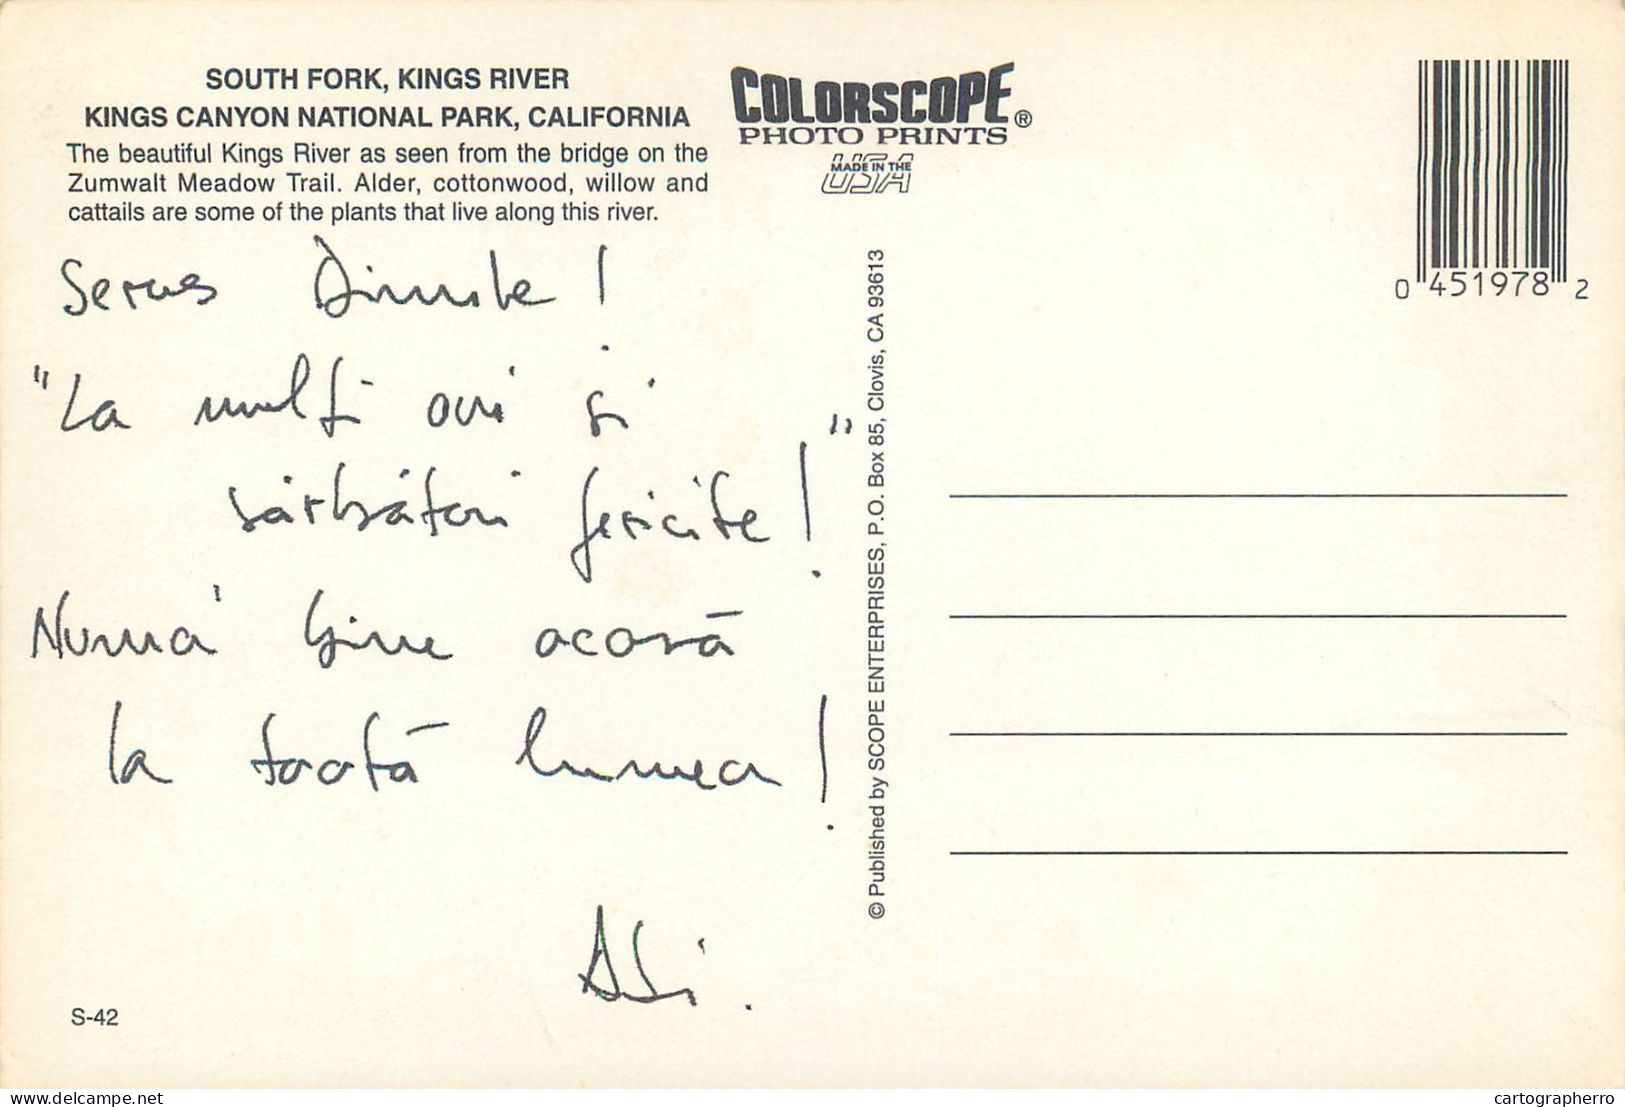 SOUTH FORK, KINGS RIVER
KINGS CANYON NATIONAL PARK, CALIFORNIA
The beautiful Kings River as seen from the bridge on the
Zumwalt Meadow Trail. Alder, cottonwood, willow and
cattails are some of the plants that live along this river.
COLORSCOPE®
PHOTO PRINTS
MADE IN THE
USA
0 451978 2
Servus !
"La mulţi ani si
sărbători fericite!"
Numa' bine acasă
la toată lumea!
© Published by SCOPE ENTERPRISES, P.O. Box 85, Clovis, CA 93613
S-42
delcampe.net
cartographerro